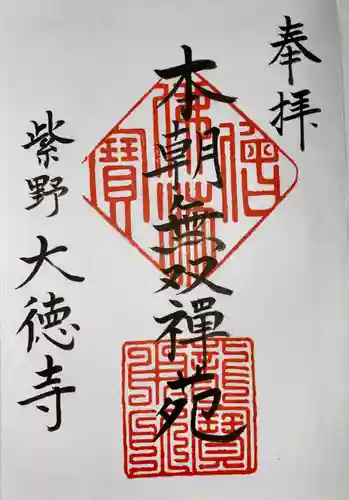 奉拝
本朝無双禅苑
紫野 大徳寺